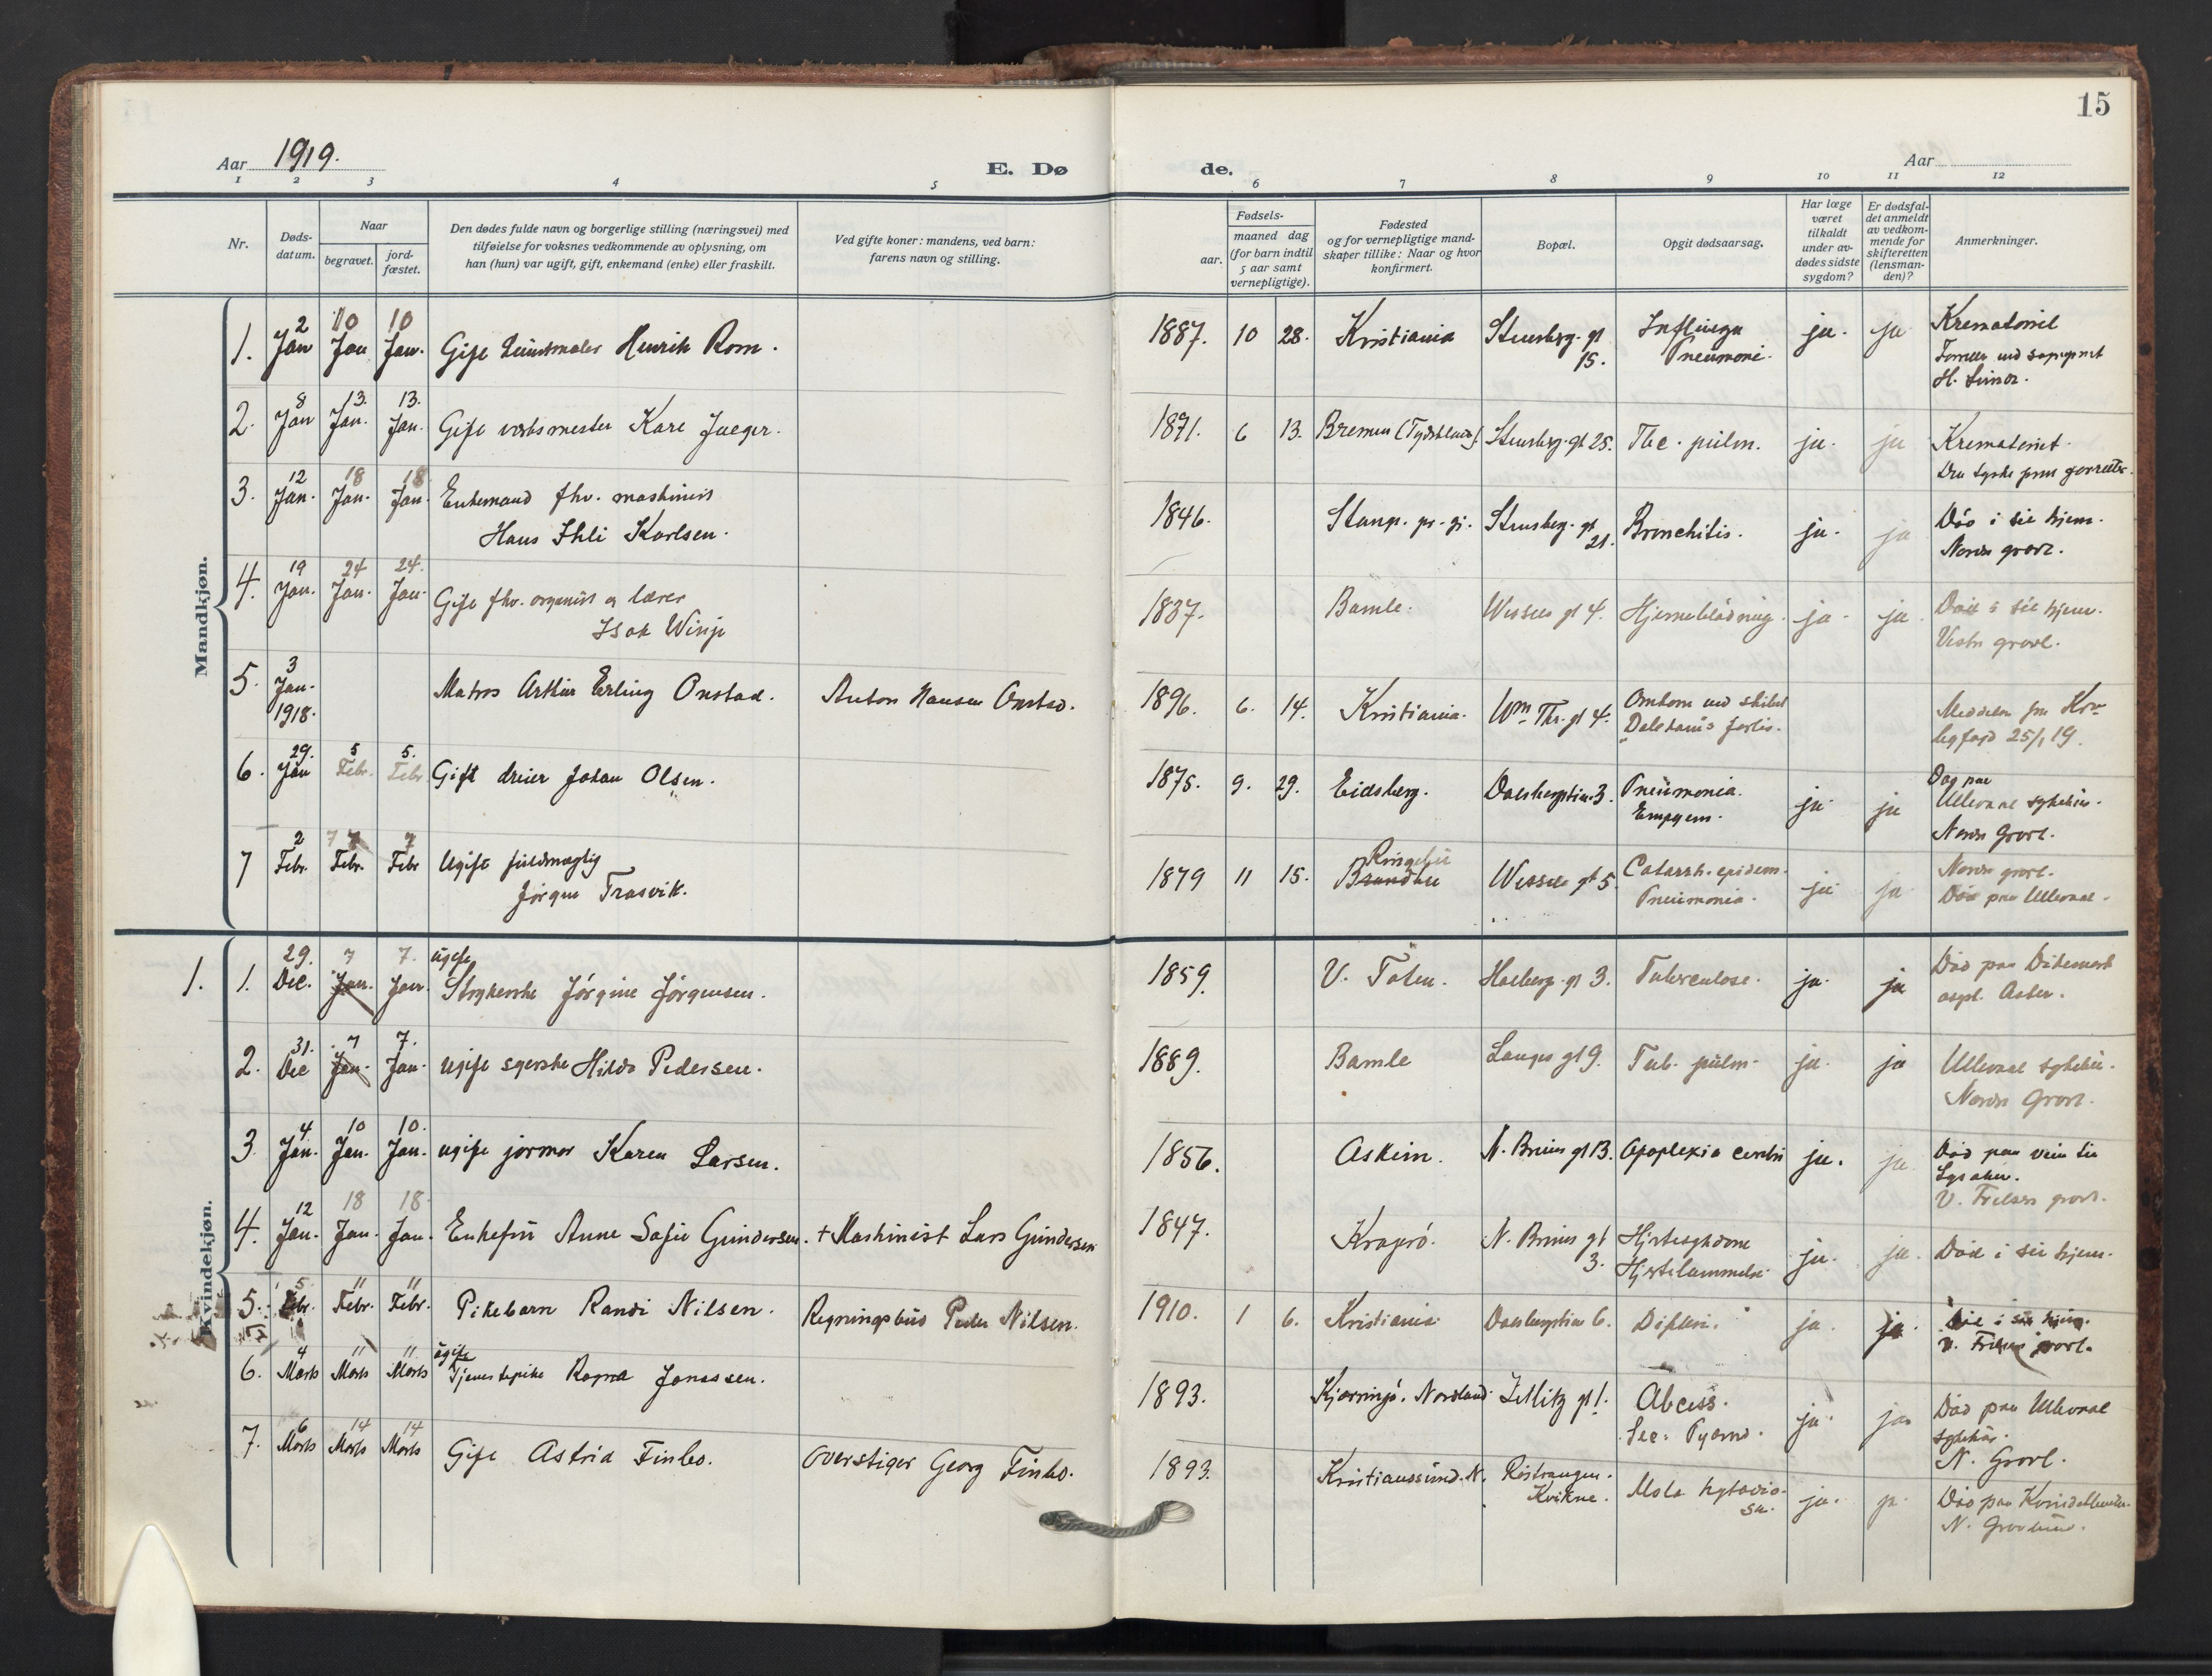 15
Aar 1919.
E. Dø
de.
Aar
1 2 3 4 5 6 7 8 9 10 11 12
Nr.
Døds-
datum.
Naar
begravet.
jord-
fæstet.
Den dødes fulde navn og borgerlige stilling (næringsvei) med
tilføielse for voksnes vedkommende av oplysning, om
han (hun) var ugift, gift, enkemand (enke) eller fraskilt.
Ved gifte koner: mandens, ved barn:
farens navn og stilling.
Fødsels-
aar.
maaned dag
(for barn indtil
5 aar samt
vernepligtige).
Fødested
og for vernepligtige mand-
skaper tillike: Naar og hvor
konfirmert.
Bopæl.
Opgit dødsaarsag.
Har læge
været
tilkaldt
under av-
dødes sidste
sygdom?
Er dødsfal-
det anmeldt
av vedkom-
mende for
skifteretten
(lensman-
den)?
Anmerkninger.
Mandkjøn.
1. 2 Jan 10 Jan 10 Jan. Gift Henrik Rom. 1887. 10 28. Kristiania Stensberg. gt 15. Influenza Pneumoni. ja. ja Krematoriet
2. 8 Jan 13. Jan. 13. Jan. Gift Jaeger. 1871. 6 13. Bremen (Tydskland). Stensberg. gt 25. Tbc. pulm. ja. ja Krematoriet.
3. 12 Jan. 18 Jan. 18 Jan. Enkemand fhv. maskinist
Hans Ihli Karlsen. 1846. Stensberg. gt 21. Bronchitis. ja. ja Død i sit hjem.
Nordre gravl.
4. 19 Jan. 24 Jan. 24. Jan. Gift fhv. organist og lærer
Isak Winje 1837. Bamle. Wessels gt 4. Hjerneblødning. ja. ja. Død i sit hjem.
Vestre gravl.
5. 3 Jan. 1918. Matros Arthur Erling Onstad. Anton Hansen Onstad. 1896. 6. 14. Kristiania. Wm. Thr. gt 4. Omkom ved skibet
forlis. 25/1 19.
6. 29. Jan 5 Febr. 5. Febr Gift dreier Johan Olsen. 1875. 9. 29. Eidsberg. Dalsbergstien 3. Pneumonia.
Empyem. ja. ja Ullevaal sykehus.
Nordre Gravl.
7 2 Febr. 7 Febr. 7 Febr Ugift fuldmægtig
Jørgen Trasvik. 1879 11 15. Ringebu Wessels gt 5. Catarrh. epidem.
Pneumonia. ja. ja Nordre gravl.
Død paa Ullevaal.
Kvindekjøn.
1. 1. 29. Dec. 7 Jan. 7. Jan. ugift
Strykerske Jørgine Jørgensen. 1859. V. Toten. Holberg. gt 3. Tuberculose. ja. ja Død paa Dikemark
asyl. Asker.
2. 31. Dec 7 Jan. 7. Jan. ugift syerske Hilda Pedersen. 1889. Bamle Langes gt 9. Tub. pulm. ja. ja Ullevaal sykehus.
Nordre Gravl.
3. 4 Jan. 10 Jan. 10. Jan. ugift jormor Karen Larsen. 1856. Askim. N. Bruns gt 13. Apoplexia cerebri ja. ja. Død paa vein til
Lysaker.
V. Frelsers gravl.
4. 12 Jan. 18 Jan. 18. Jan. Enkefru Anne Sofie Gundersen. + Maskinist Lars Gundersen 1847. Kragerø. N. Bruns gt 3. Hjertesygdom
Hjertelammelse. ja. ja. Død i sit hjem.
5. 5 Febr. 11 Febr. 11 Febr. Pikebarn Randi Nilsen. Peder Nilsen. 1910. 1 6. Kristiania. Dalsbergstien 6. Difteri. ja. ja. Død i sit hjem.
V. Frelsers gravl.
6. 4 Marts 11 Marts 11. Marts ugift
Tjenestepike Ragna Jonassen. 1893. Nordland. Zetlitz gt 1. Abcess.
Sec. Pyæmi. ja. ja. Død paa Ullevaal
sykehus.
N. Gravl.
7. 6 Marts 14 Marts 14 Marts Gift Astrid Finbo. Overstiger Georg Finbo. 1893. Kristianssund. N. Røstvangen.
Kvikne. Mola hydatido-
sa. ja. ja. Død paa Kvindeklinik.
N. Gravlund.